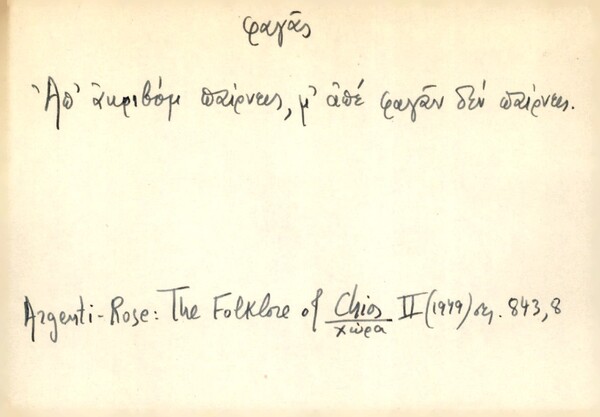 φαγᾶς
Ἀπ' ἀκριβόμ παίρνεις, μ' ἀπέ φαγᾶν δέν παίρνεις.
Argenti-Rose: The Folklore of Chios II (1949) σς. 843,8
χώρα